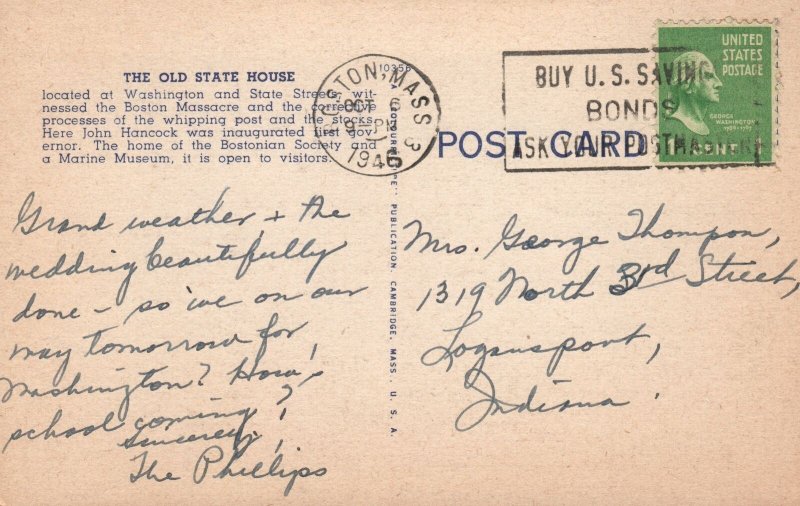 THE OLD STATE HOUSE
located at Washington and State Streets, wit-
nessed the Boston Massacre and the corrective
processes of the whipping post and the stocks.
Here John Hancock was inaugurated first gov-
ernor. The home of the Bostonian Society and
a Marine Museum, it is open to visitors.
10356
GTON, MASS. 3
OCT 6
9 PM
1946
POST CARD
BUY U.S. SAVING
BONDS
ASK YOUR POSTMASTER
UNITED
STATES
POSTAGE
GEORGE
WASHINGTON
1789-1797
1 CENT
PUBLICATION, CAMBRIDGE, MASS., U.S.A.
Grand weather, + the
wedding beautifully
done – so 'we on our
way tomorrow for
Washington? How's
school coming?
Sincerely,
The Phillips
Mrs. George Thompson,
1319 North 3rd Street,
Logansport,
Indiana.